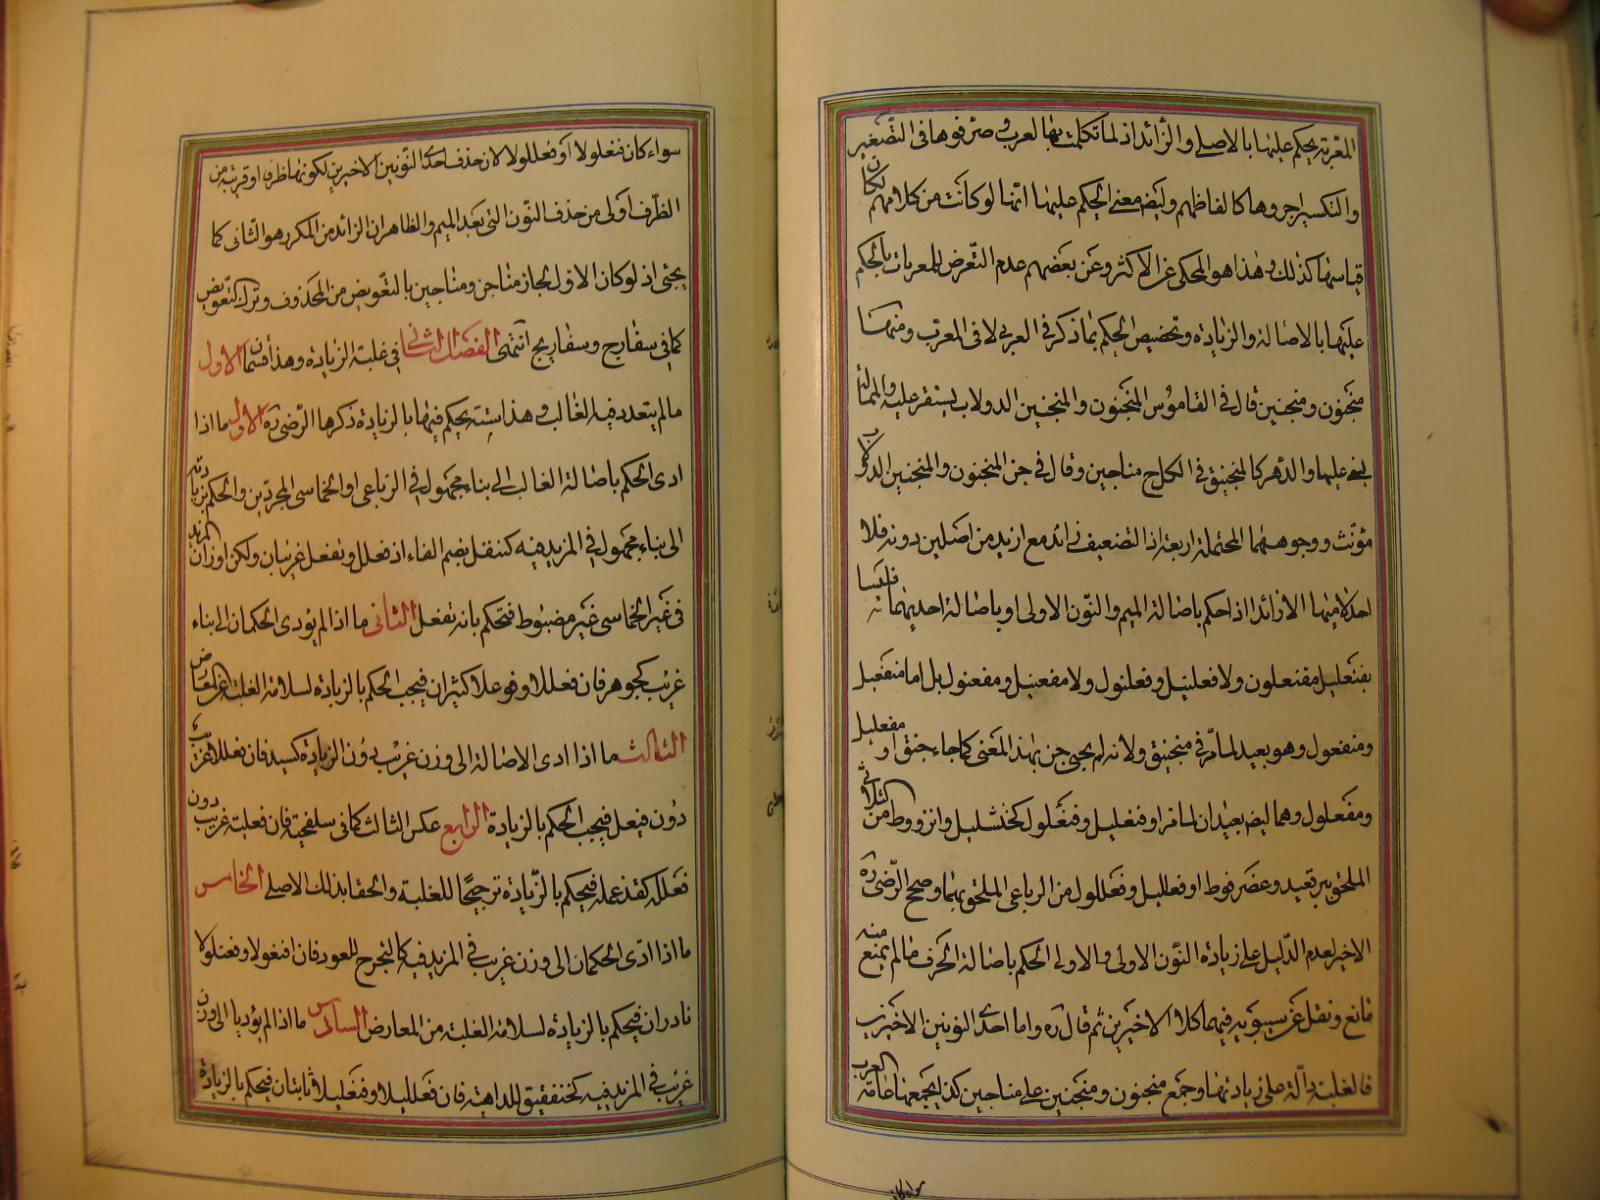 المعربة يحكم عليها بالاصلي والزائد اذ لما تكلمت بها العرب وصرفوها في التصغير
والتكسير اجروها كالفاظهم وليضه معنى الحكم عليها انها لو كانت من كلامهم لكان
قياسها كذلك وهذا هو المحكى عن الاكثر وعن بعضهم عدم التعرض للمعربات بالحكم
عليها بالاصالة والزيادة وتخصيص الحكم بما ذكر في العربي لا في المعرب ومنها
منجنون ومنجنين قال في القاموس المنجنون والمنجنين الدولاب يستقر عليه والمحالة
يسنى عليها والدهر كالمنجنيق في الكل ج مناجين وقال في جن المنجنون والمنجنين الدولاب
مؤنث ووجوههما المحتملة اربعة اذ التضعيف زائد مع ازيد من اصلين دونه فلا
احدهما منها الا زائدا اذ احكم باصالة الميم والنون الاولى او باصالة احديهما فليسا
بفنعليل مفنعلون ولا فعلنيل وفعلنول ولا مفعنيل ومفعنول بل اما منفعيل
ومنفعول وهو بعيد لما مر في منجنيق ولانه لم يجئ جن بهذا المعنى كما جاء جنق او مفعليل
ومفعلول وهما ليضه بعيدان لما مر او فنعليل وفنعلول كخنشليل وانزووط من الثلاثي
الملحق ببرقعيد وعضرفوط او فعلليل وفعللول من الرباعي الملحق بهما وصحح الرضى ره
الاخير لعدم الدليل على زيادة النون الاولى والاولى الحكم باصالة الحرف ما لم يمنع منه
مانع ونقل عن سيبويه فيهما كلا الاخيرين ثم قال ره واما احدى النونين الاخيرتين
فالغلبة دالة على زيادتها وجمع منجنون ومنجنين على مناجين كذا يجمعها عامة العرب
سواء كان
سواء كان فنعلولا او فعللولا لان حذف احدى النونين الاخيرين لكونها ظرفه او قريبة من
الطرف اولى من حذف النون التى بعد الميم والظاهر ان الزائد من المكرر هو الثانى كما
يجئ اذ لو كان الاول لجاز مناجن ومناجين بالتعويض من المحذوف وترك التعويض
كما في سفارج وسفاريج انتهى الفصل الثانى في غلبة الزيادة وهذا قسمان الاول
ما لم يتعدد فيه الغالب وهذا ستة يحكم فيها بالزيادة ذكرها الرضى ره الاول ما اذا
ادى الحكم باصالة الغالب الى بناء مجهول في الرباعى او الخماسى المجردين والحكم بزيادته
الى بناء مجهول في المزيد فيه كتتفل بضم الفاء اذ فعلل وتفعل غريبان ولكن اوزان المزيد
فى غير الخماسى غير مضبوط فتحكم بانه تفعل الثانى ما اذا لم يؤدى الحكمان الى بناء
غريب كجوهر فان فعللا وفوعلا كثيران فيجب الحكم بالزيادة لسلامة الغلبة عن المعارض
الثالث ما اذا ادى الاصالة الى وزن غريب دون الزيادة كسيد فان فعللا غريب
دون فيعل فيجب الحكم بالزيادة الرابع عكس الثالث كما فى سلحفية فان فعلية غريب دون
فعللة كقذعملة فيحكم بالزيادة ترجيحا للغلبة والحقا بذلك الاصلى الخامس
ما اذا ادى الحكمان الى وزن غريب في المزيد فيه كالنجوج للعود فان افنعولا وفعنلولا
نادران فيحكم بالزيادة لسلامة الغلبة من المعارض السادس ما اذا لم يؤديا الى وزن
غريب في المزيد فيه كخنفقيق للداهية فان فعلليلا وفنعليلا ثابتان فيحكم بالزيادة